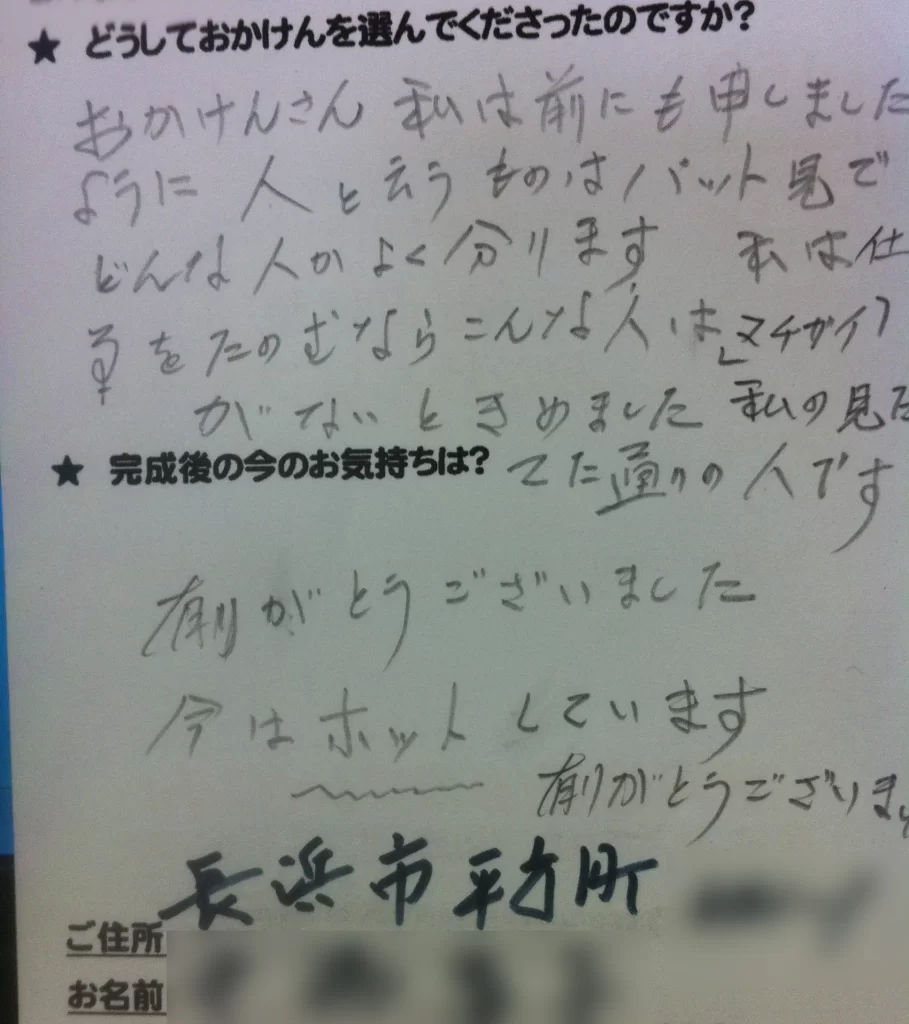 ★ どうしておかけんを選んでくださったのですか?
おかけんさん 私は前にも申しました
ように 人と云うものはパット見で
どんな人かよく分ります 私は仕
事をたのむならこんな人は「マチガイ」
がないときめました 私の見た
★ 完成後の今のお気持ちは?
てた通りの人です
有りがとうございました
今はホットしています
有りがとうございま
長浜市平方町
ご住所
お名前